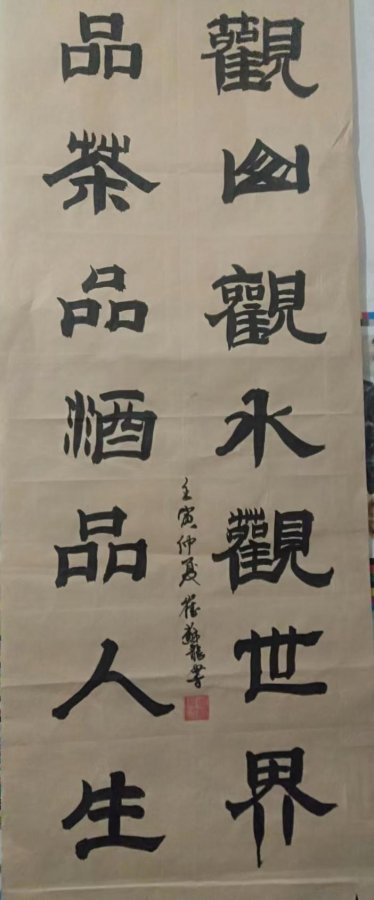 觀山觀水觀世界
品茶品酒品人生
壬寅仲夏 崔龍書